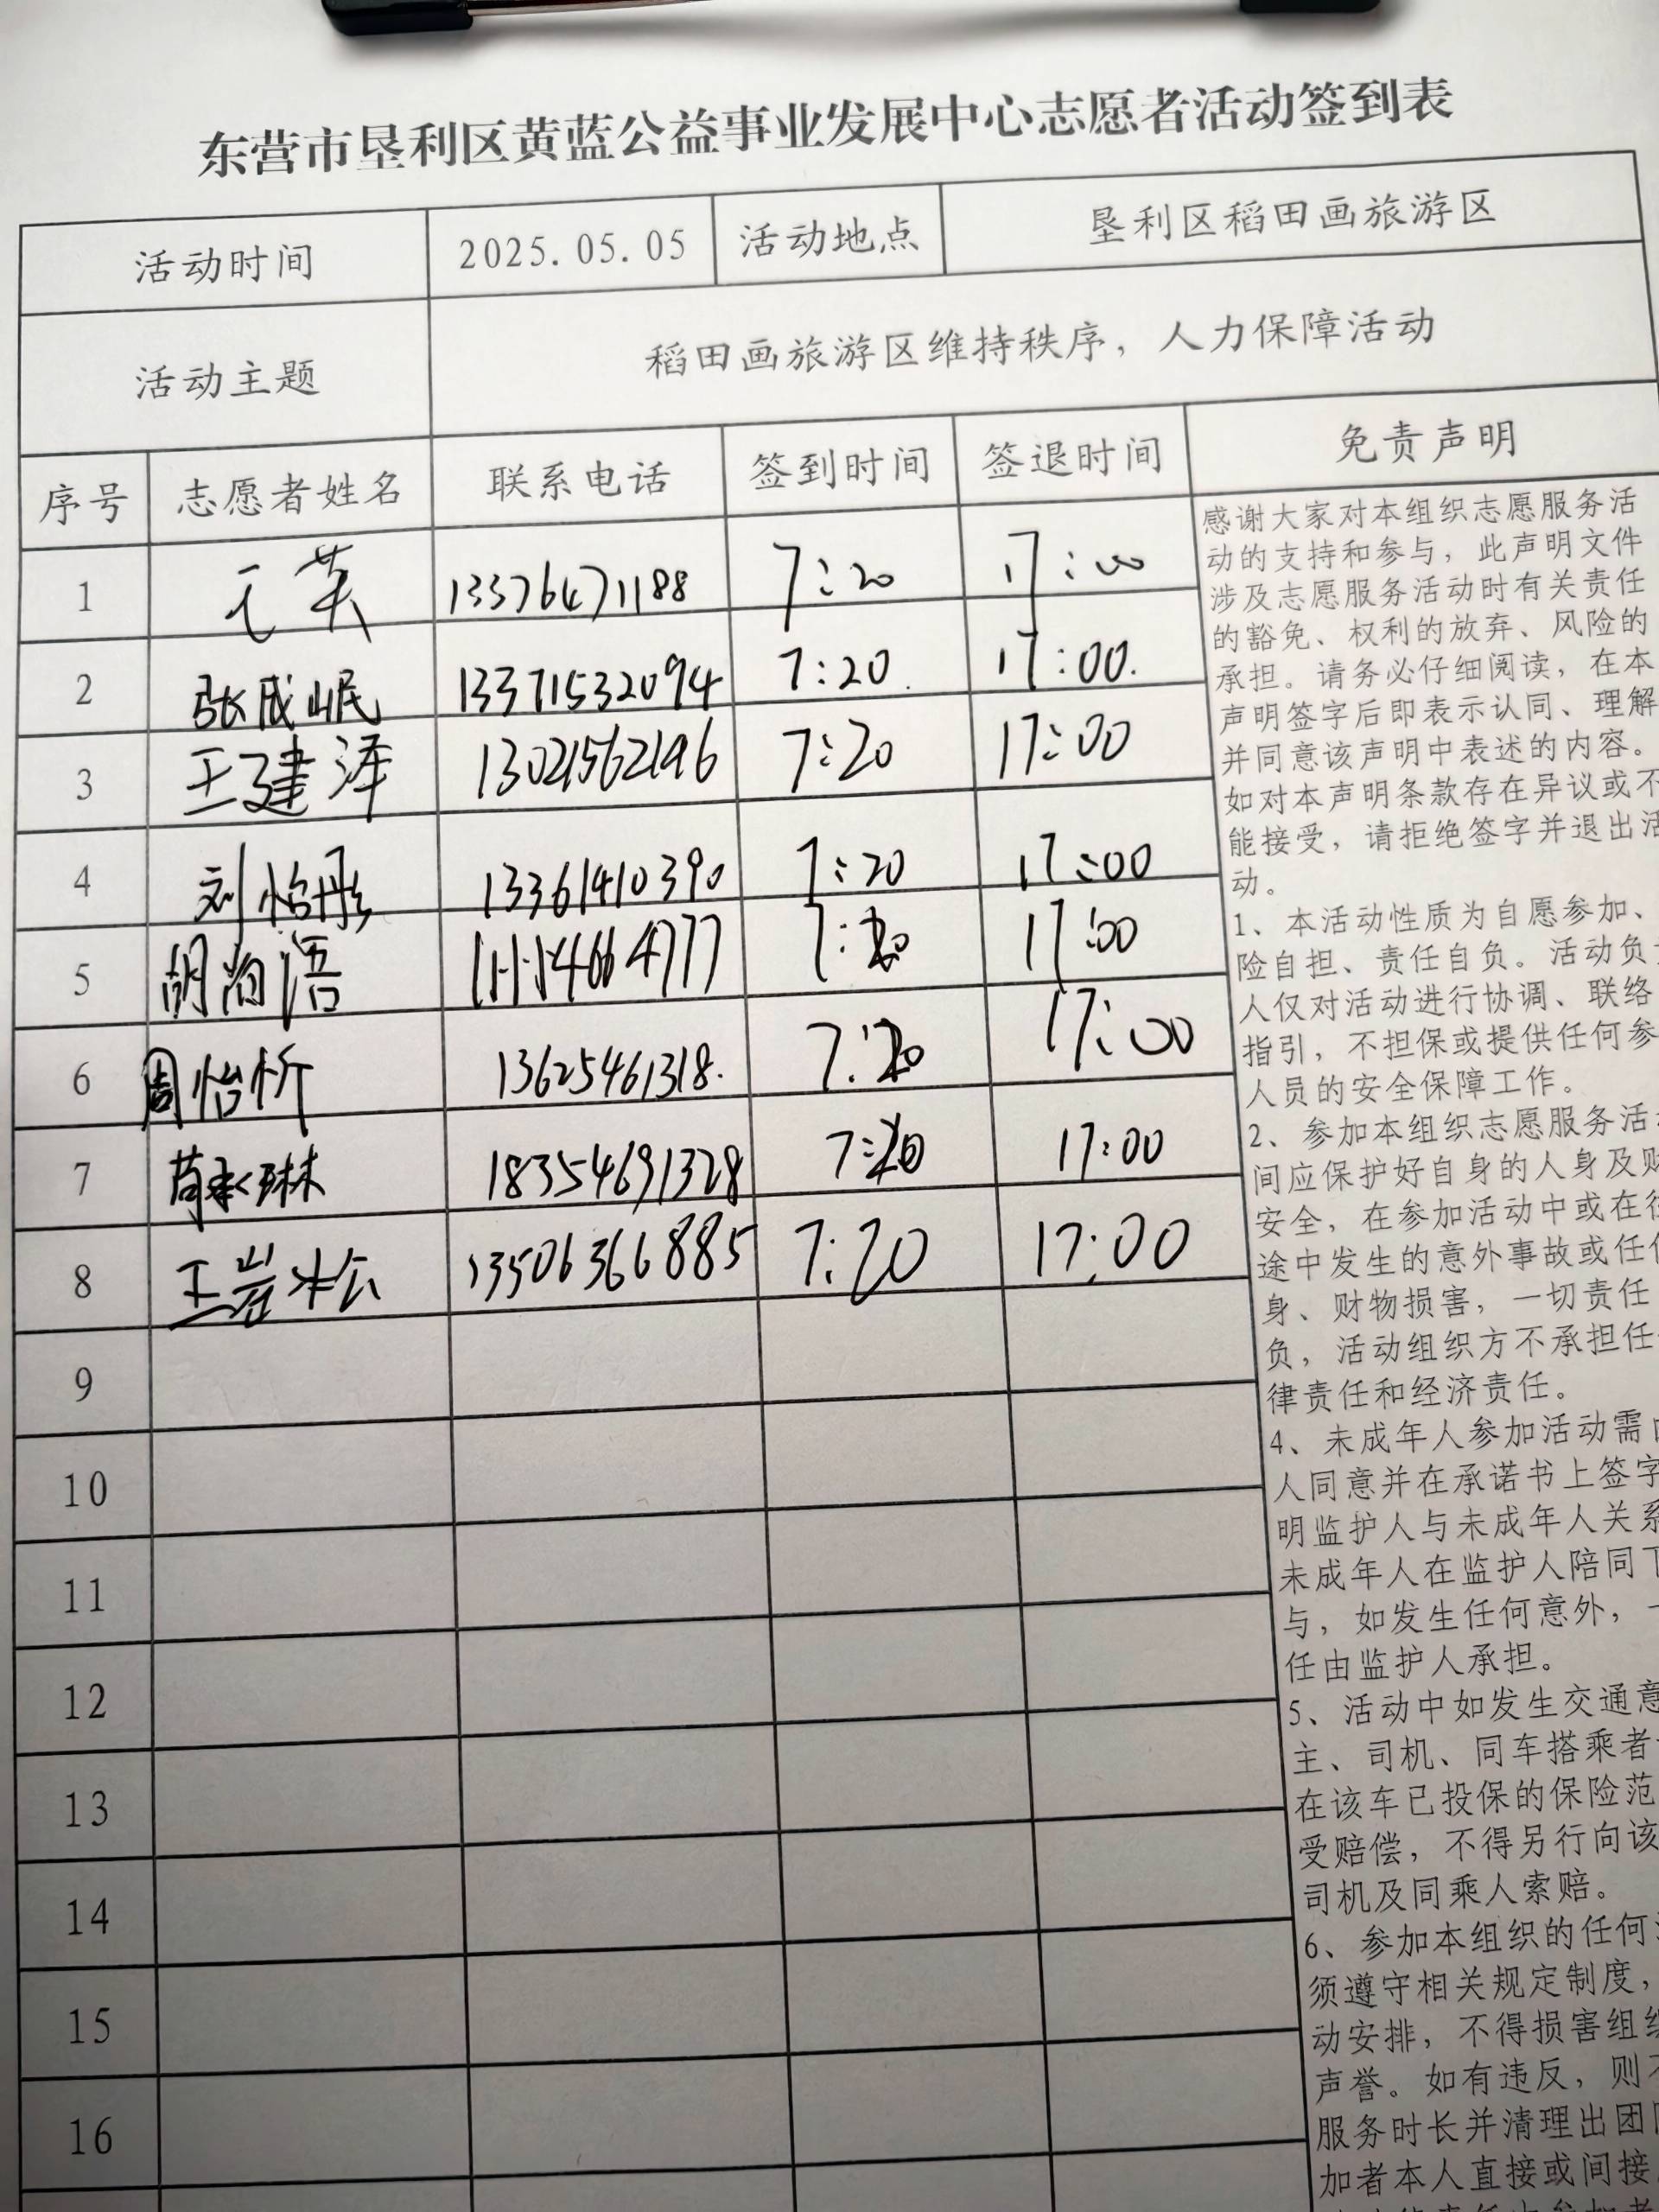 东营市垦利区黄蓝公益事业发展中心志愿者活动签到表
活动时间 2025.05.05 活动地点 垦利区稻田画旅游区
活动主题 稻田画旅游区维持秩序，人力保障活动
序号 志愿者姓名 联系电话 签到时间 签退时间 免责声明
1 13376471188 7:20 17:00
2 张成岷 13371532094 7:20 17:00.
3 王建泽 13021562196 7:20 17:00
4 刘怡彤 13361410390 7:20 17:00
5 胡 语 7:20 17:00
6 周怡忻 13625461318. 7:20 17:00
7 琳 18354691328 7:20 17:00
8 王岩松 13506366885 7:20 17:00
9
10
11
12
13
14
15
16
感谢大家对本组织志愿服务活
动的支持和参与，此声明文件
涉及志愿服务活动时有关责任
的豁免、权利的放弃、风险的
承担。请务必仔细阅读，在本
声明签字后即表示认同、理解
并同意该声明中表述的内容。
如对本声明条款存在异议或不
能接受，请拒绝签字并退出活
动。
1、本活动性质为自愿参加、
险自担、责任自负。活动负
人仅对活动进行协调、联络
指引，不担保或提供任何参
人员的安全保障工作。
2、参加本组织志愿服务活
间应保护好自身的人身及财
安全，在参加活动中或在往
途中发生的意外事故或任何
身、财物损害，一切责任
负，活动组织方不承担任
律责任和经济责任。
4、未成年人参加活动需
人同意并在承诺书上签字
明监护人与未成年人关系
未成年人在监护人陪同下
与，如发生任何意外，一
任由监护人承担。
5、活动中如发生交通意
主、司机、同车搭乘者
在该车已投保的保险范
受赔偿，不得另行向该
司机及同乘人索赔。
6、参加本组织的任何
须遵守相关规定制度，
动安排，不得损害组织
声誉。如有违反，则不
服务时长并清理出团队
加者本人直接或间接